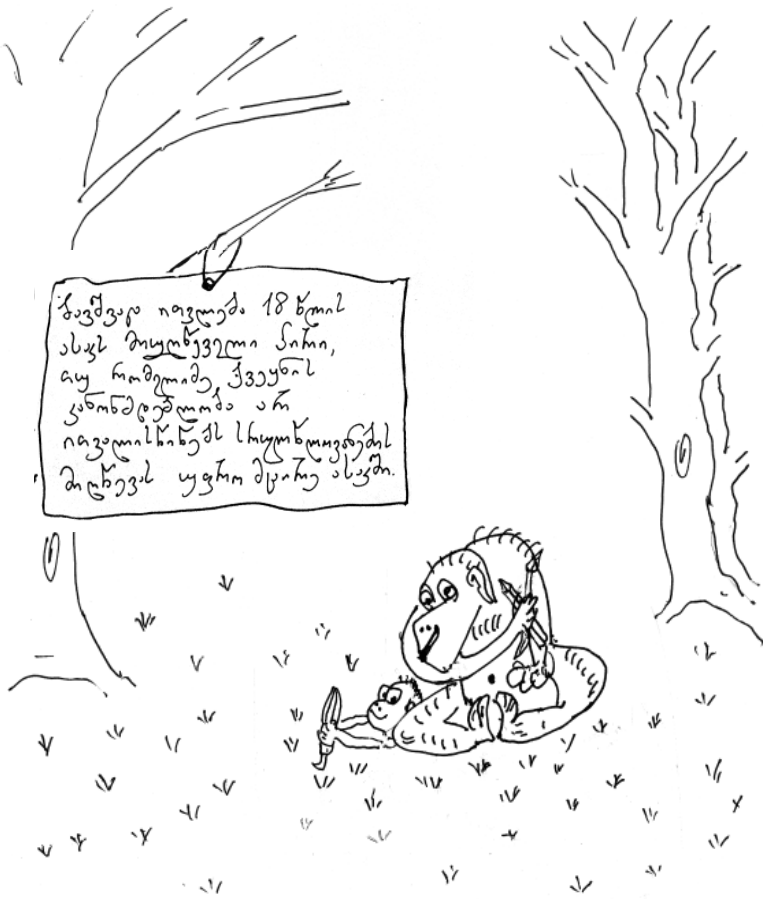 ბავშვად ითვლება 18 წლის
ასაკს მიუღწეველი პირი,
თუ რომელიმე ქვეყნის
კანონმდებლობა არ
ითვალისწინებს სრულწლოვანების
მიღწევას უფრო მცირე ასაკში.